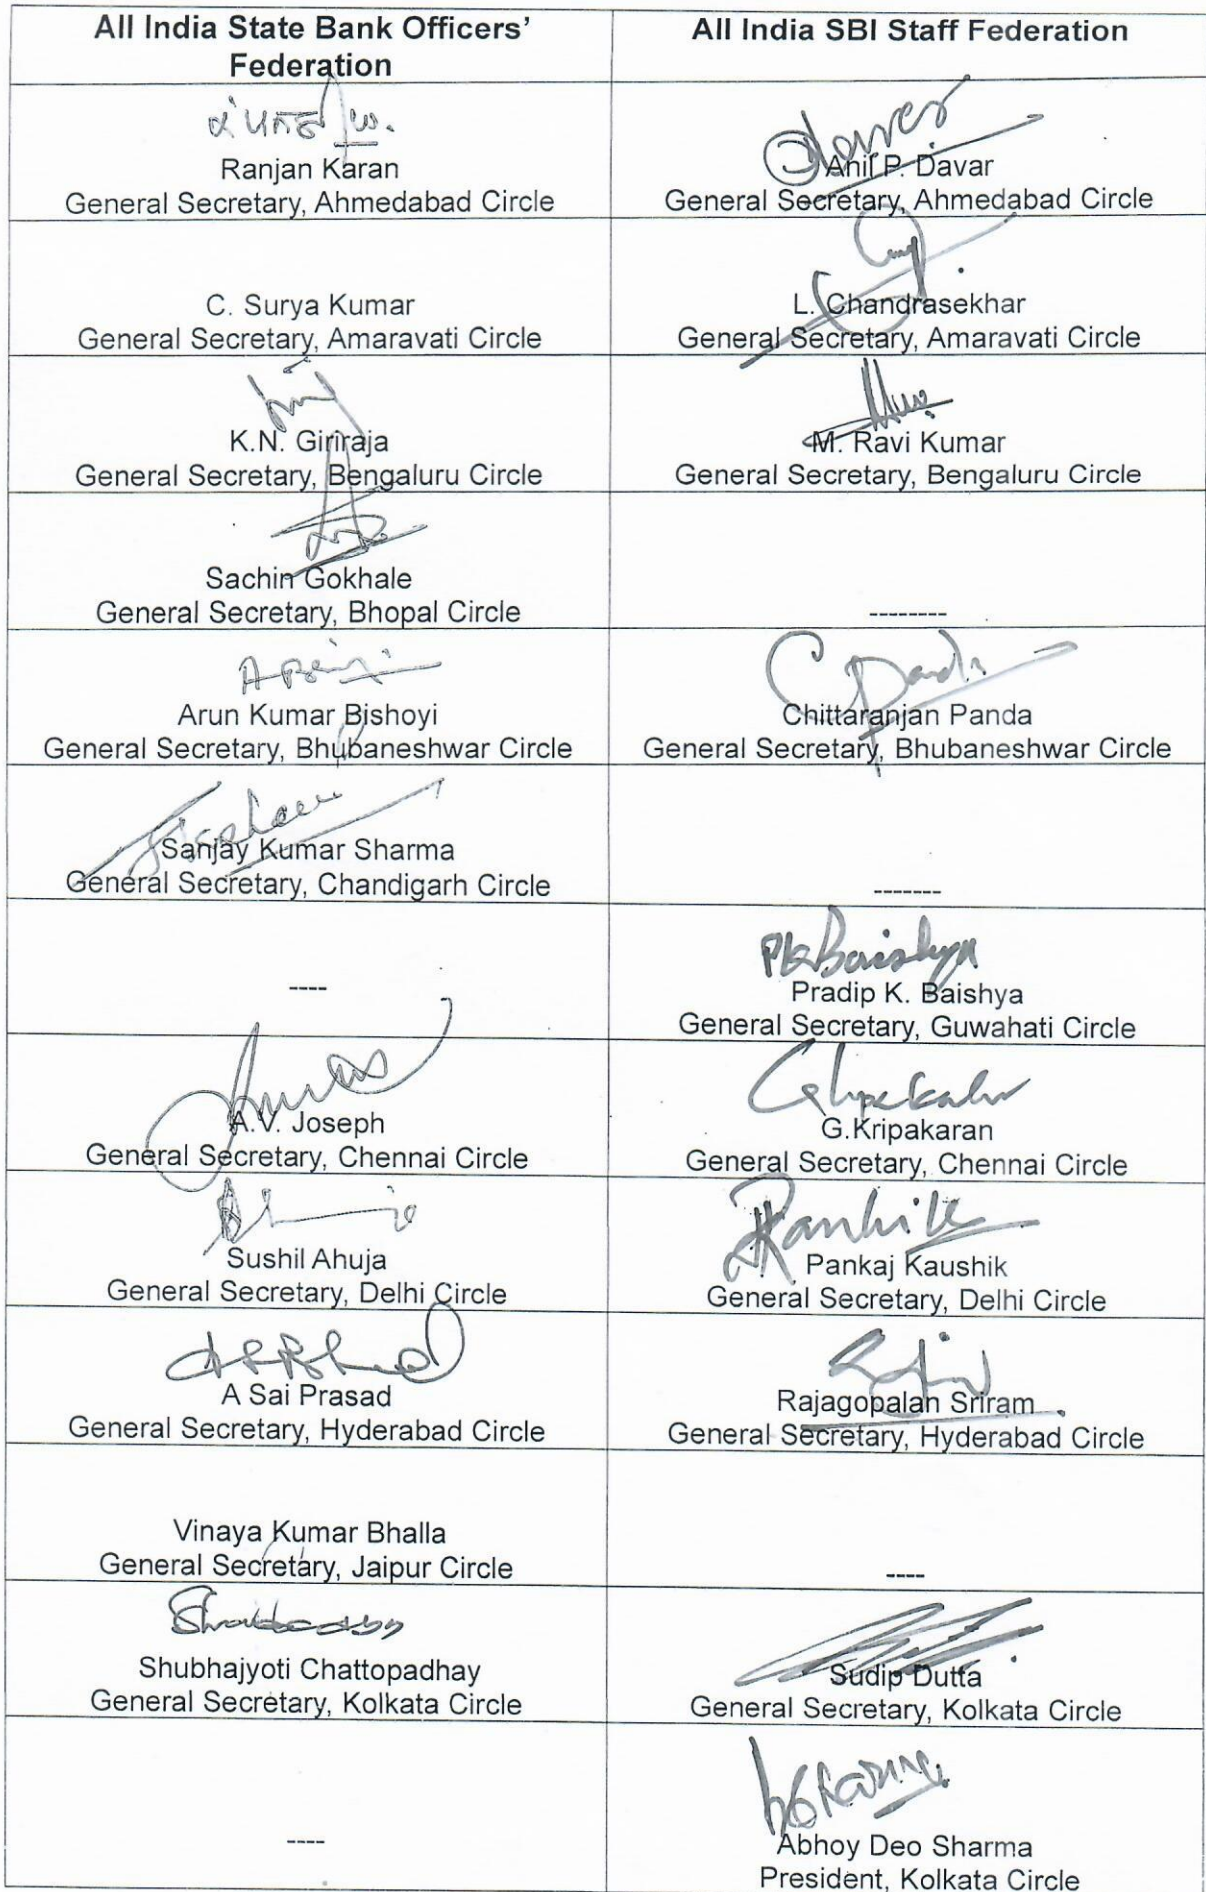 All India State Bank Officers'
Federation
All India SBI Staff Federation
Ranjan Karan
General Secretary, Ahmedabad Circle
Anil P. Davar
General Secretary, Ahmedabad Circle
C. Surya Kumar
General Secretary, Amaravati Circle
L. Chandrasekhar
General Secretary, Amaravati Circle
K.N. Giriraja
General Secretary, Bengaluru Circle
M. Ravi Kumar
General Secretary, Bengaluru Circle
Sachin Gokhale
General Secretary, Bhopal Circle
--------
Arun Kumar Bishoyi
General Secretary, Bhubaneshwar Circle
Chittaranjan Panda
General Secretary, Bhubaneshwar Circle
Sanjay Kumar Sharma
General Secretary, Chandigarh Circle
-------
----
PKBaishya
Pradip K. Baishya
General Secretary, Guwahati Circle
A.V. Joseph
General Secretary, Chennai Circle
G.Kripakaran
General Secretary, Chennai Circle
Sushil Ahuja
General Secretary, Delhi Circle
Pankaj Kaushik
General Secretary, Delhi Circle
A Sai Prasad
General Secretary, Hyderabad Circle
Rajagopalan Sriram
General Secretary, Hyderabad Circle
Vinaya Kumar Bhalla
General Secretary, Jaipur Circle
----
Shubhajyoti Chattopadhay
General Secretary, Kolkata Circle
Sudip Dutta
General Secretary, Kolkata Circle
----
Abhoy Deo Sharma
President, Kolkata Circle